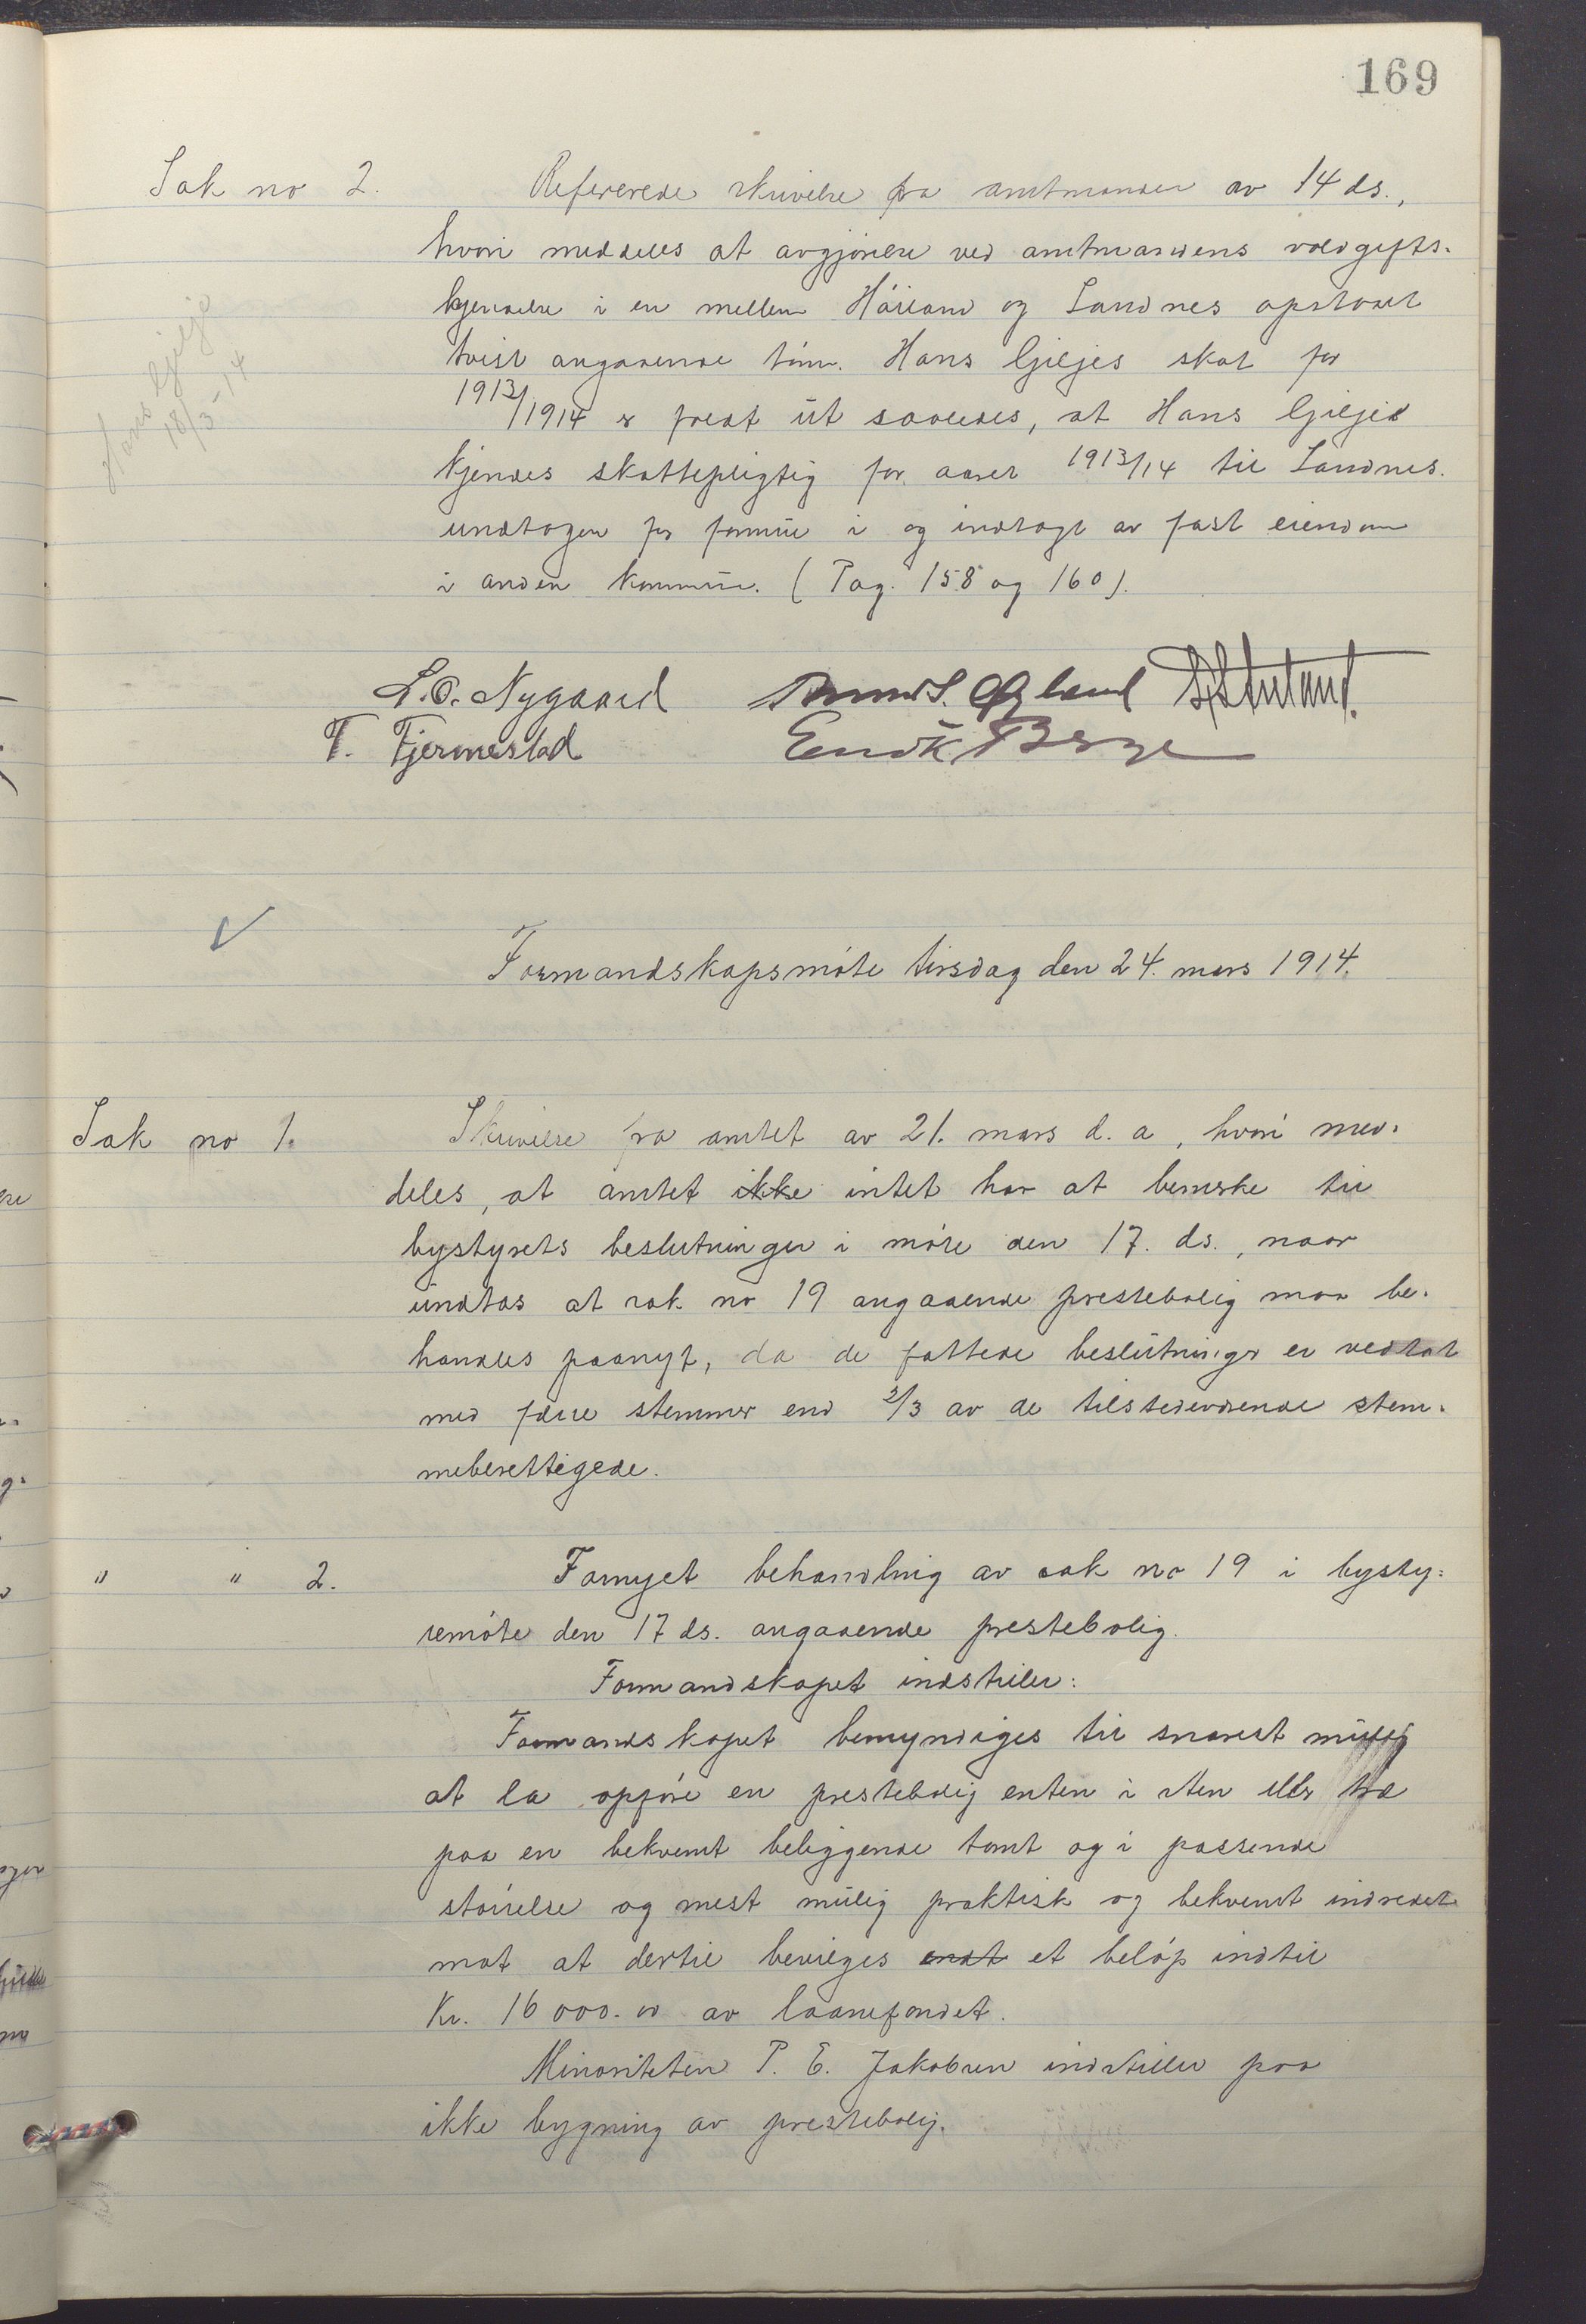 169
Sak no 2. Refererede skrivelse fra amtmanden av 14 ds.,
hvori meddeles at avgjørelse ved amtmandens voldgifts-
kjendelse i en mellem Høiland og Sandnes opstaaet
tvist angaaende tøm. Hans Giljes skat for
1913/1914 er faldt ut saaledes, at Hans Gilje
kjendes skattepligtig for aaret 1913/14 til Sandnes.
undtagen for formue i og indtægt av fast eiendom
i anden kommune. (Pag. 158 og 160).
Hans Gilje
18/3-14
L. O. Nygaard Øgland
T. Tjermestad Endk Berge
Formandskapsmøte tirsdag den 24. mars 1914.
Sak no 1. Skrivelse fra amtet av 21. mars d. a, hvori med-
deles, at amtet ikke intet har at bemerke til
bystyrets beslutninger i møte den 17. ds., naar
undtas at sak no 19 angaaende prestebolig maa be-
handles paanyt, da de fattede beslutninger er vedtat
med færre stemmer end 2/3 av de tilstedeværende stem-
meberettigede.
" " 2. Fornyet behandling av sak no 19 i bysty=
remøte den 17 ds. angaaende prestebolig.
Formandskapet indstiller:
Formandskapet bemyndiges til snarest mulig
at la opføre en prestebolig enten i sten eller træ
paa en bekvemt beliggende tomt og i passende
størrelse og mest mulig praktisk og bekvemt indredet
mot at dertil bevilges et beløp indtil
Kr. 16 000.00 av laanefondet.
Minoriteten P. E. Jakobsen indstiller paa
ikke bygning av prestebolig.